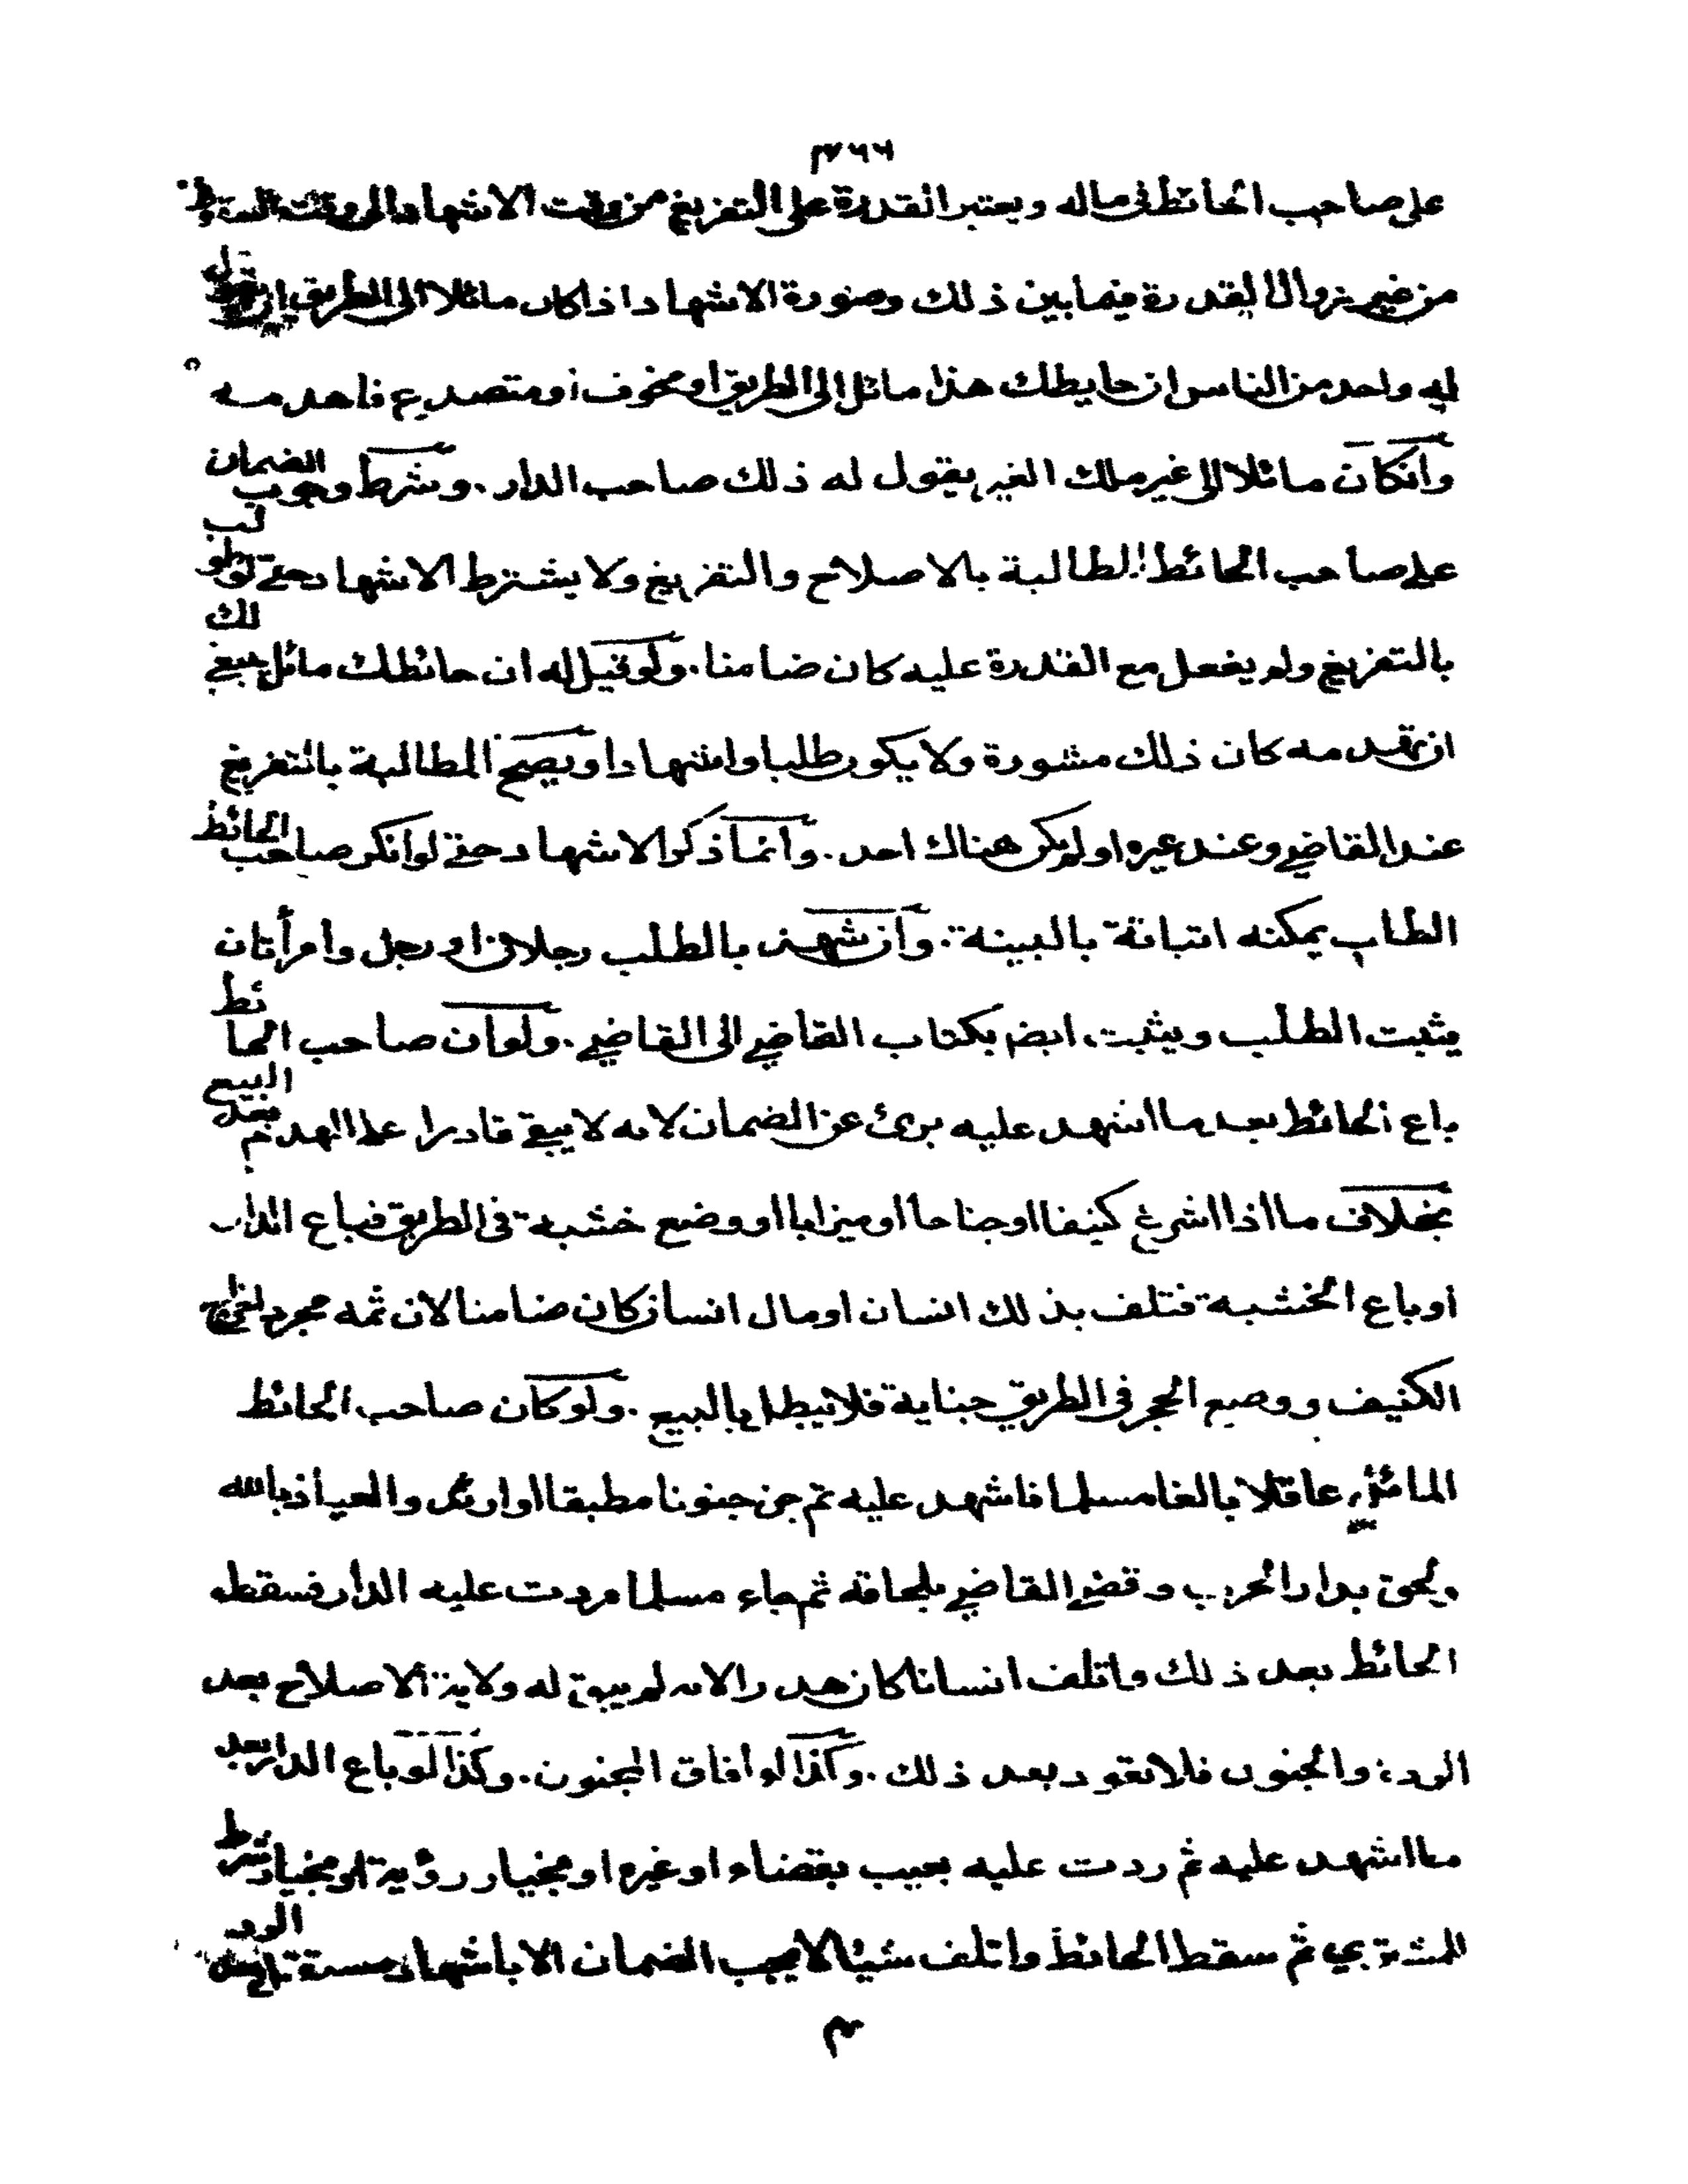 ٣٦٦
على صاحب الحائط فى ماله ويعتبر القدرة على التفريغ من وقت الاشهاد الى وقت السقوط
من غير زوال القدرة فيما بين ذلك وصورة الاشهاد اذا كان مائلا الى الطريق ان يقول
له واحد من الناس ان حايطك هذا مائل الى الطريق او مخوف او متصدع فاهدمه
وانكان مائلا الى غير ملك الغير يقول له ذلك صاحب الدار. وشرط وجوب الضمان
على صاحب الحائط المطالبة بالاصلاح والتفريغ ولا يشترط الاشهاد حتى لو طولب
بالتفريغ ولم يفعل مع القدرة عليه كان ضامنا. ولو قيل له ان حائطك مائل ينبغي لك
ان تهدمه كان ذلك مشورة ولا يكون طلبا واشهادا ويصح المطالبة بالتفريغ
عند القاضي وعند غيره او لم يكن هناك احد. وانما ذكر الاشهاد حتى لو انكر صاحب الحائط
الطلب يمكنه اثباته بالبينة. وان شهد بالطلب رجلان او رجل وامرأتان
يثبت الطلب ويثبت ايضا بكتاب القاضي الى القاضي. ولو ان صاحب الحائط
باع الحائط بعد ما اشهد عليه برئ عن الضمان لانه لا يبقى قادرا على الهدم بعد البيع
بخلاف ما اذا اشرع كنيفا او جناحا او ميزابا او وضع خشبة فى الطريق فباع الدار
او باع الخشبة فتلف بذلك انسان او مال انسان كان ضامنا لان ثمه مجرد اخراج
الكنيف ووضع الحجر فى الطريق جناية فلا يبطل بالبيع. ولو كان صاحب الحائط
المائل عاقلا بالغا مسلما فاشهد عليه ثم جن جنونا مطبقا او ارتد والعياذ بالله
ولحق بدار الحرب وقضى القاضي بلحاقه ثم جاء مسلما وردت عليه الدار فسقط
الحائط بعد ذلك واتلف انسانا كان هدرا لانه لم يبق له ولاية الاصلاح بعد
الردة والجنون فلا تعود بعد ذلك. وكذا لو افاق المجنون. وكذا لو باع الدار بعد
ما اشهد عليه ثم ردت عليه بعيب بقضاء او غيره او بخيار رؤية او بخيار شرط
المشترى ثم سقط الحائط واتلف شيئا لا يجب الضمان الا باشهاد مستقبل بعد الرد